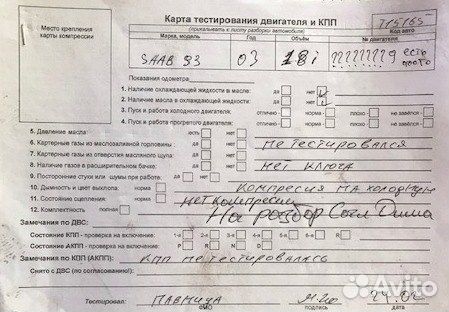 Место крепления карты компрессии
Карта тестирования двигателя и КПП
(прикалывать к листу разборки автомобиля)
Код авто
Марка, модель Год Объём № двигателя
SAAB 93 03 1.8i ????????9 есть
Показания одометра
1. Наличие охлаждающей жидкости в масле: да нет
2. Наличие масла в охлаждающей жидкости: да нет
3. Пуск и работа холодного двигателя: отлично норма плохо не завёлся
4. Пуск и работа прогретого двигателя: отлично норма плохо не завёлся
5. Давление масла: есть нет
6. Картерные газы из маслозаливной горловины: есть нет не тестировался
7. Картерные газы из отверстия масляного щупа: есть нет
8. Наличие газов в расширительном бачке: да нет нет ключа
9. Посторонние стуки или шумы при работе: да нет
10. Дымность и цвет выхлопа: норма компрессия на холодную
11. Состояние сцепления: норма нет компрессии
12. Комплектность: полная На разбор Согл Дима
Замечания по ДВС:
Состояние КПП - проверка на включение: 1-я 2-я 3-я 4-я 5-я 6-я R
Состояние АКПП - проверка на включение: P R N D
Замечания по КПП (АКПП): КПП не тестировалась
Снято с ДВС (по согласованию!):
Тестировал:
ФИО подпись дата
Avito